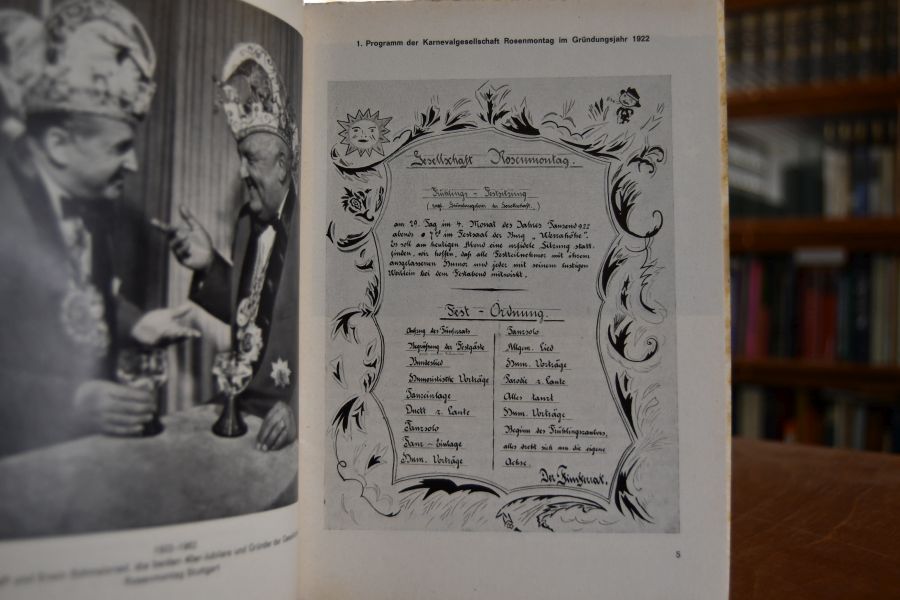 1. Programm der Karnevalgesellschaft Rosenmontag im Gründungsjahr 1922
Gesellschaft Rosenmontag.
Frühlings - Festsitzung
( zugl. Gründungsfeier der Gesellschaft. )
am 29. Tag im 4. Monat des Jahres Tausend 922
abends 7 im Festsaal der Burg „Werrahöhe".
Es soll am heutigen Abend eine infidele Sitzung statt-
finden, wir hoffen, daß alle Festteilnehmer mit ihrem
ausgelassenen Humor und jeder mit seinem lustigen
bei dem Festabend mitwirkt.
Fest - Ordnung.
des Fünferrats
Begrüßung der Festgäste
Bundeslied
Humoristische Vorträge
Tanzeinlage
Duett z. Laute
Tanzsolo
Tanz - Einlage
Hum. Vorträge
Tanzsolo
Allgem. Lied
Hum. Vorträge
Parodie z. Laute
Alles tanzt
Hum. Vorträge
Beginn des Frühlingszaubers,
alles dreht sich um die eigene
Achse.
Der Fünferrat.
5
1922-1962
und Erwin die beiden 40er-Jubilare und Gründer der
Rosenmontag Stuttgart